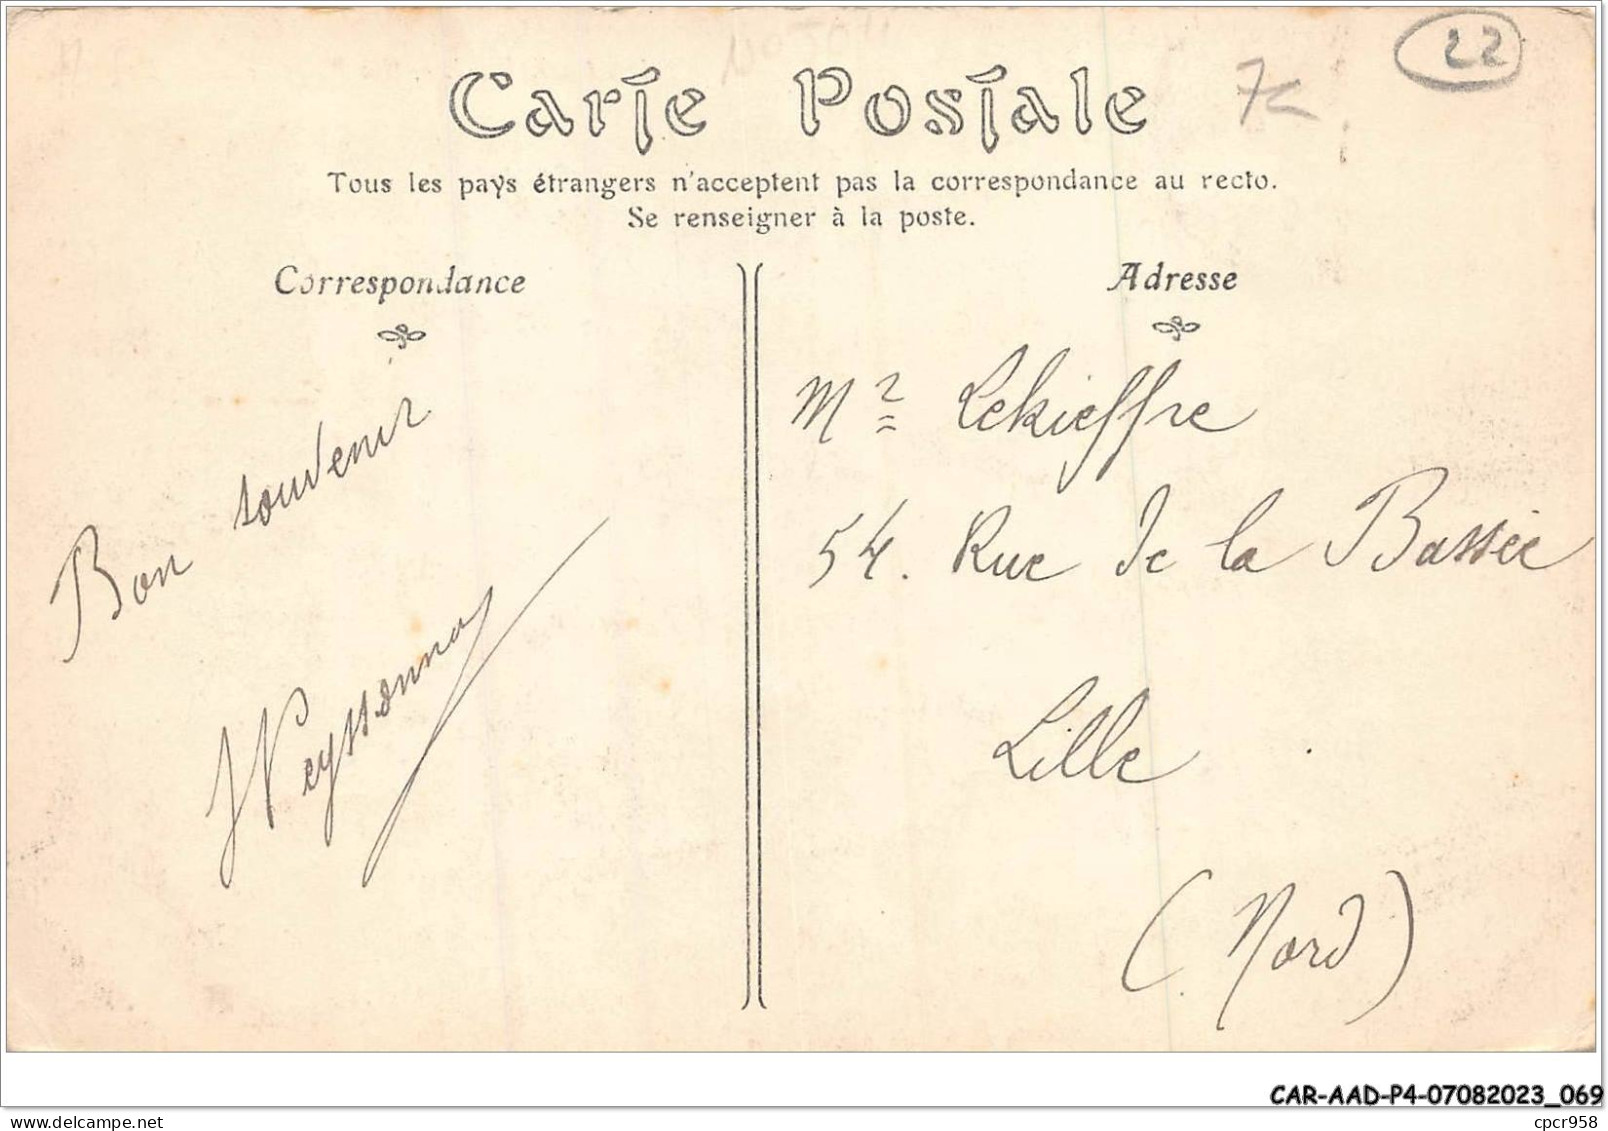 22
Carte Postale
Tous les pays étrangers n'acceptent pas la correspondance au recto.
Se renseigner à la poste.
Correspondance
Bon souvenir
Adresse
Mr Lekieffre
54. Rue de la Bassée
Lille
(Nord)
CAR-AAD-P4-07082023_069
delcampe.net
cpcr958